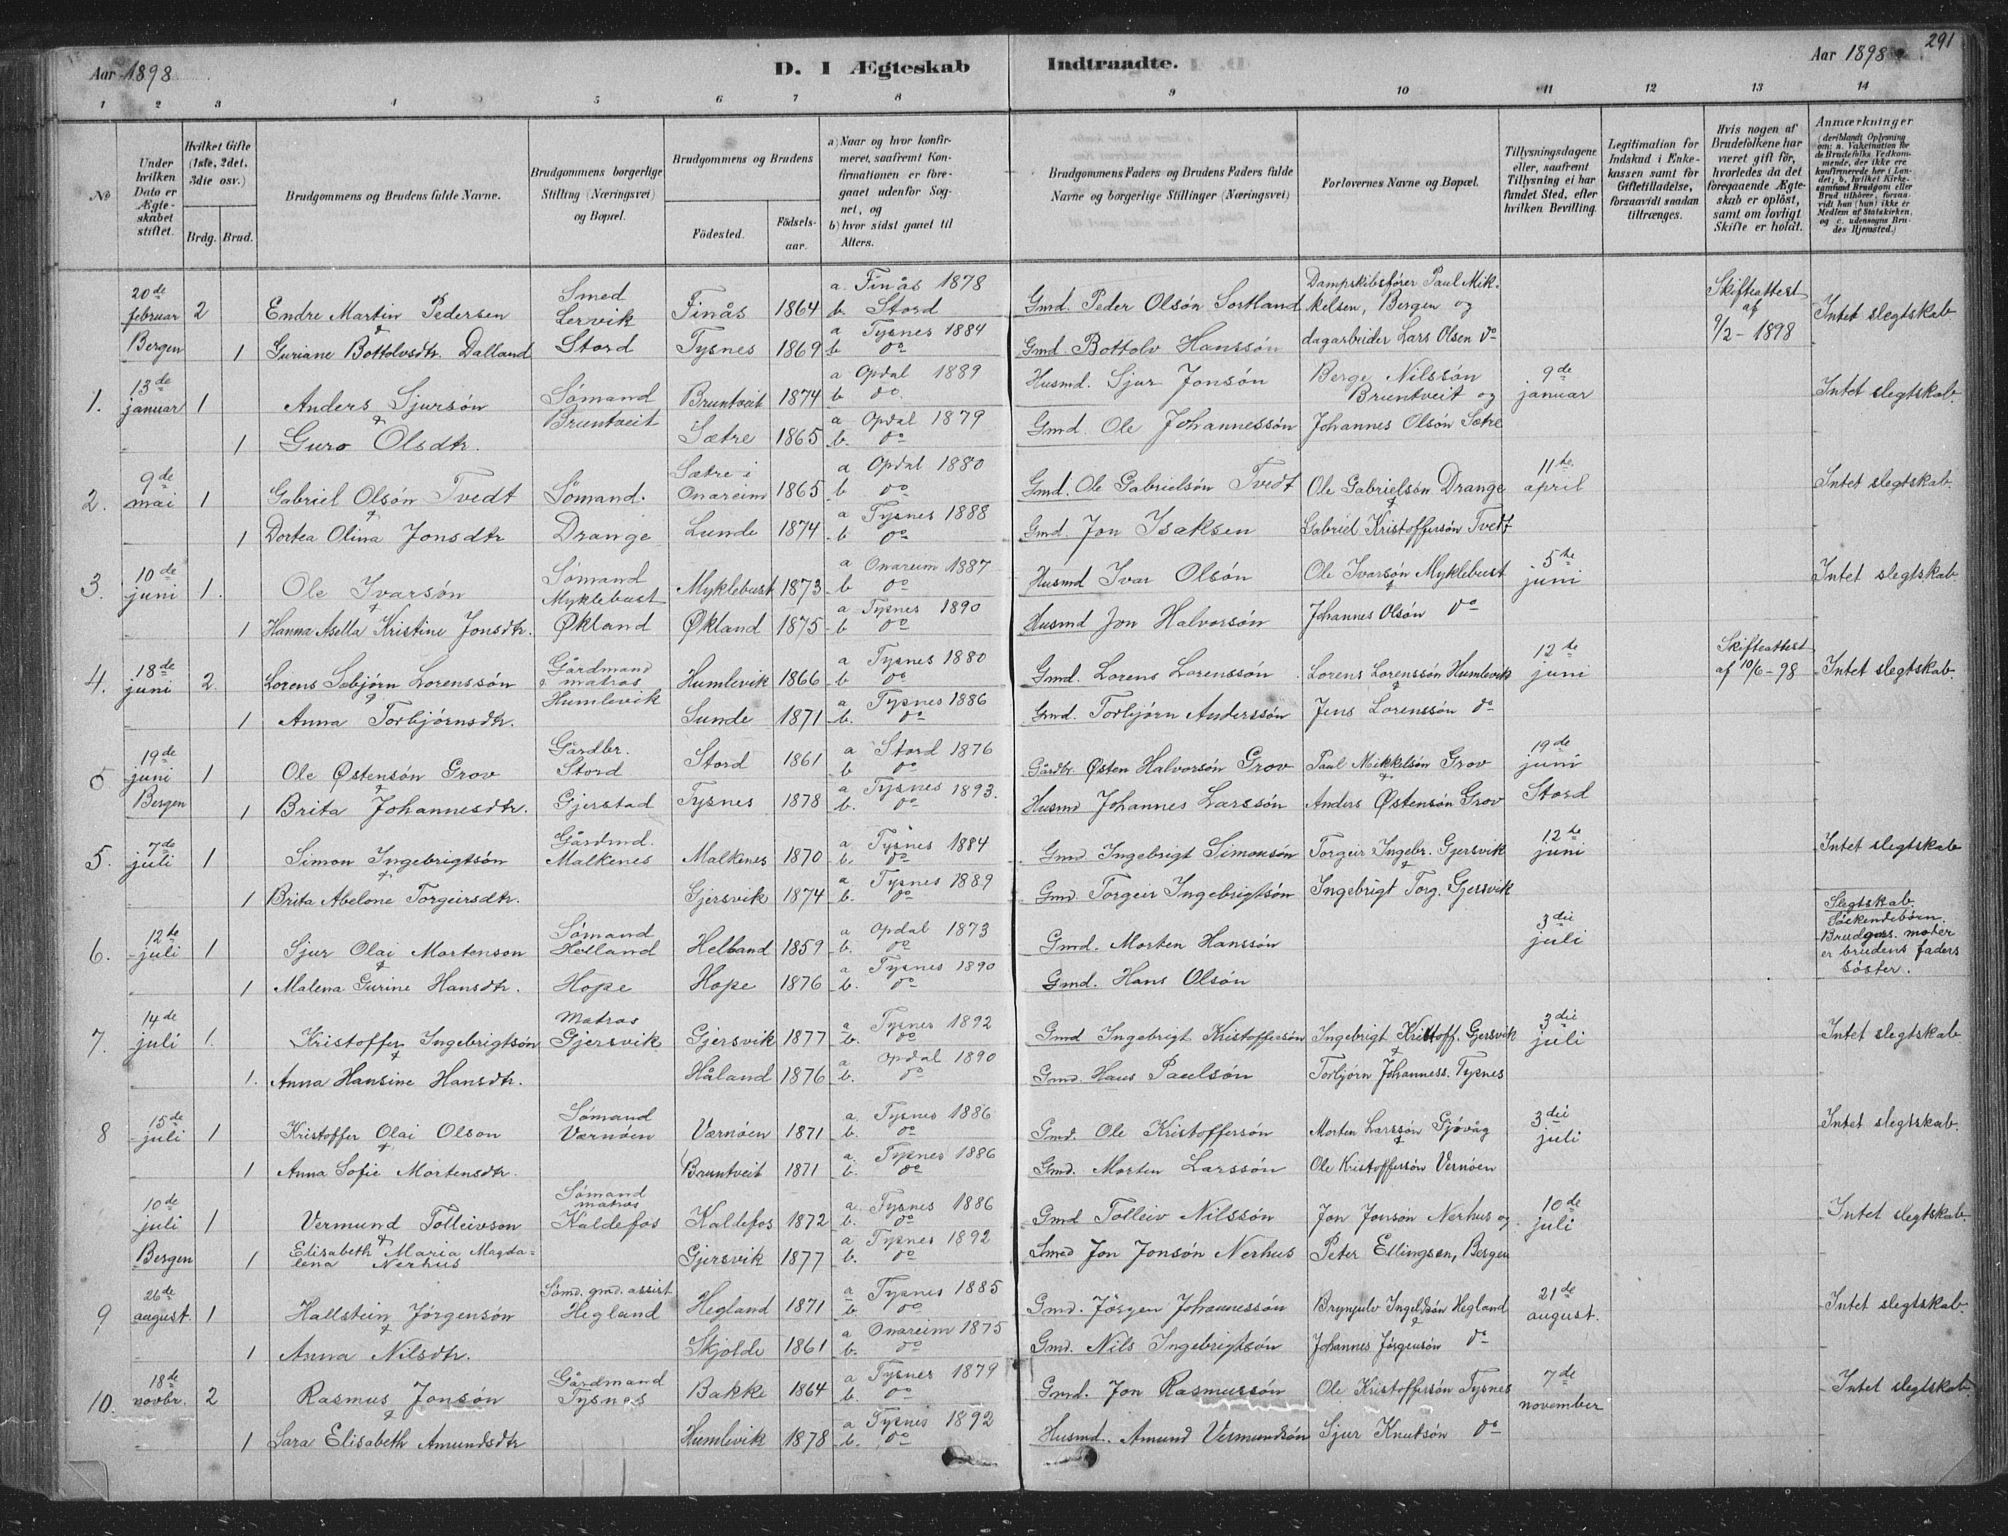 Aar 1898 D. I Ægteskab Indtraadte. Aar 1898 291
1 2 3 4 5 6 7 8 9 10 11 12 13 14
No
Under hvilken Dato er Ægteskabet stiftet.
Hvilket Gifte (1ste, 2det, 3die osv.)
Brdg. Brud.
Brudgommens og Brudens fulde Navne.
Brudgommens borgerlige Stilling (Næringsvei) og Bopæl.
Brudgommens og Brudens
Fødested. Fødselsaar.
a) Naar og hvor konfirmeret, saafremt Konfirmationen er foregaaet udenfor Sognet, og
b) hvor sidst gaaet til Alters.
Brudgommens Faders og Brudens Faders fulde Navne og borgerlige Stillinger (Næringsvei)
Forlovernes Navne og Bopæl.
Tillysningsdagene eller, saafremt Tillysning ei har fundet Sted, efter hvilken Bevilling.
Legitimation for Indskud i Enkekassen samt for Giftetilladelse, forsaavidt saadan tiltrænges.
Hvis nogen af Brudefolkene har været gift før, hvorledes da det foregaaende Ægteskab er opløst, samt om lovligt Skifte er holdt.
Anmærkninger (deriblandt Oplysning om: a. Vakcination for de Brudefolks Vedkommende, der ikke ere konfirmerede her i Landet, b. hvilket Kirkesamfund Brudgom eller Brud tilhører, forsaavidt han (hun) ikke er Medlem af Statskirken, og c. udensogns Brudes Hjemsted.)
20de februar Bergen 2 Endre Martin Pedersen Smed Lervik Stord Finås 1864 a. Finås 1878 b. Stord Gmd. Peder Olsøn Sortland Dampskibsfører Paul Mikkelsen, Bergen og Skifteattest af 9/2-1898 Intet slegtskab
1 Guriane Bottolvsdtr. Dalland Tysnes 1869 a Tysnes 1884 b do Gmd. Bottolv Hanssøn dagarbeider Lars Olsen do
1. 13de januar 1 Anders Sjursøn Sømand Bruntveit Bruntveit 1874 a Opdal 1889 b do Husmd. Sjur Jonsøn Berge Nilssøn Bruntveit og 9de januar Intet slegtskab.
1 Guro Olsdtr. Sætre 1865 a Opdal 1879 b. do Gmd. Ole Johannessøn Johannes Olsøn Sætre
2. 9de mai 1 Gabriel Olsøn Tvedt Sømand. Drange Sætre i Onareim 1865 a Opdal 1880 b do Gmd. Ole Gabrielsøn Tvedt Ole Gabrielsøn Drange 11te april Intet slegtskab.
1 Dortea Olina Jonsdtr Lunde 1874 a Tysnes 1888 b do Gmd. Jon Isaksen Gabriel Kristoffersøn Tvedt
3. 10de juni 1. Ole Ivarsøn Sømand Myklebust Myklebust 1873 a Onareim 1887 b do Husmd Ivar Olsøn Ole Ivarsøn Myklebust 5te juni Intet slegtskab
1 Hanna Asella Kristine Jonsdtr. Økland Økland 1875 a Tysnes 1890 b do Husmd Jon Halvorsøn Johannes Olsøn do
4. 18de juni 2. Lorens Sebjørn Lorenssøn Gårdmand matros Humlevik Humlevik 1866 a Tysnes 1880 b do Gmd. Lorens Lorenssøn Lorens Lorenssøn Humlevik 12te juni Skifteattest af 10/6-98 Intet slegtskab
1 Anna Torbjørnsdtr. Sunde 1871 a Tysnes 1886 b. do Gmd. Torbjørn Anderssøn Jens Lorenssøn do
5 19de juni Bergen 1 Ole Østensøn Grov Gårdbr. Stord Stord 1861 a Stord 1876 b do Gårdbr. Østen Halvorsøn Grov Paul Mikkelsøn Grov 19de juni Stord
1 Brita Johannesdtr. Gjerstad Tysnes 1878 a Tysnes 1893. b. do Husmd Johannes Larssøn Anders Østensøn Grov
5. 7de juli 1 Simon Ingebrigtsøn Gårdmd. Malkenes Malkenes 1870 a Tysnes 1884 b. do Gmd Ingebrigt Simonsøn Torgeir Ingebr. Gjersvik 12te juni Intet slegtskab
1 Brita Abelone Torgeirsdtr. Gjersvik 1874 a Tysnes 1889 b. do Gmd. Torgeir Ingebrigtsøn Ingebrigt Torg. Gjersvik
6. 12te juli 1 Sjur Olai Mortenson Sømand Helland Helland 1859 a Opdal 1873 b. do Gmd. Morten Hanssøn 3die juli Slegtskab. Søskendebørn. Brudgms. moder er brudens faders søster.
1 Malena Gurine Hansdtr. Hope Hope 1876 a Tysnes 1890 b. do Gmd. Hans Olsøn
7. 14de juli 1. Kristoffer Ingebrigtsøn Matros Gjersvik Gjersvik 1877 a Tysnes 1892 b. do Gmd Ingebrigt Kristoffersøn Ingebrigt Kristoff. Gjersvik 3die juli Intet slegtskab
1. Anna Hansine Hansdtr. Håland 1876 a Opdal 1890 b. do Gmd. Hans Paulsøn Torbjørn Johanness. Tysnes
8 15de juli 1 Kristoffer Olai Olson Sømand Værnøen Værnøen 1871 a. Tysnes 1886 b. do Gmd. Ole Kristoffersøn Morten Larssøn Gjøvåg 3die juli Intet slegtskab.
1 Anna Sofie Mortensdtr. Bruntveit 1871 a. Tysnes 1886 b. do Gmd. Morten Larssøn Ole Kristoffersøn Vernøen
10de juli Bergen 1 Vermund Tolleivson Sømand matros Kaldefos Kaldefos 1872 a. Tysnes 1886 b. do Gmd Tolleiv Nilssøn Jon Jonsøn Nerhus og 10de juli Intet slegtskab.
1 Elisabeth Maria Magdalena Nerhus Gjersvik 1877 a Tysnes 1892 b. do Smed Jon Jonsøn Nerhus Peter Ellingsen, Bergen
9 26de august. 1 Hallstein Jørgensøn Sømd. gmd. assist Hegland Hegland 1871 a Tysnes 1885 b. do Gmd. Jørgen Johannessøn Brynjulv Hegland 21de august. Intet slegtskab.
1 Anna Nilsdtr. Skjolde 1861 a Onareim 1875 b. do Gmd. Nils Ingebrigtsøn Johannes Jørgensøn do
10. 18de novbr. 2 Rasmus Jonsøn Gårdmand Tysnes Bakke 1864 a Tysnes 1879 b. do Gmd. Jon Rasmussøn Ole Kristoffersøn Tysnes 7de november Intet slegtskab
1 Sara Elisabeth Amundsdtr Humlevik 1878 a Tysnes 1892 b. do Husmd. Amund Vermundsøn Sjur Knutsøn do